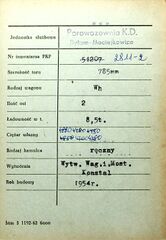 Jednostka służbowa Parowozownia K.D.
Nr inwentarza PKP 51297 2811-2
Szerokość toru 785mm
Rodzaj wagonu Wh
Ilość osi 2
Ładowność w t. 8,5t.
Ciężar własny
Rodzaj hamulca ręczny
Wytwórnia Wytw. Wag.i Most. Konstal
Rok budowy 1954r.